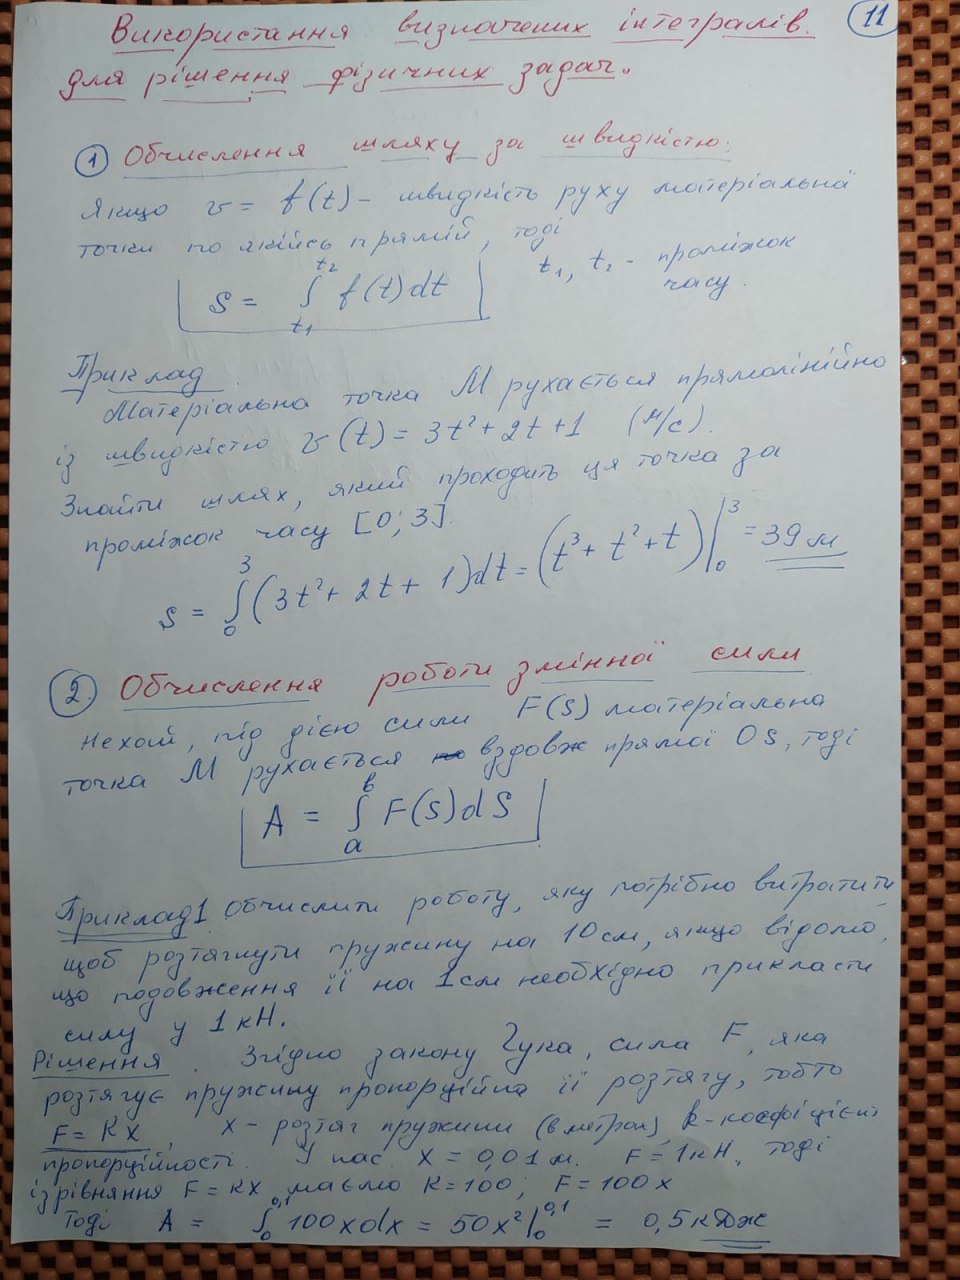 11
Використання визначених інтегралів
для рішення фізичних задач.
1 Обчислення шляху за швидкістю:
Якщо v = f(t) - швидкість руху матеріальної
точки по якійсь прямій, тоді
S = ∫_{t₁}^{t₂} f(t)dt t₁, t₂ - проміжок
часу.
Приклад.
Матеріальна точка М рухається прямолінійно
із швидкістю v(t) = 3t² + 2t + 1 (м/с).
Знайти шлях, який проходить ця точка за
проміжок часу [0; 3].
S = ∫_0^3 (3t² + 2t + 1)dt = (t³ + t² + t)|_0^3 = 39 м
2. Обчислення роботи змінної сили
Нехай, під дією сили F(S) матеріальна
точка М рухається вздовж прямої OS, тоді
A = ∫_a^b F(S)dS
Приклад 1 Обчислити роботу, яку потрібно витратити,
щоб розтягнути пружину на 10 см, якщо відомо,
що подовження її на 1 см необхідно прикласти
силу у 1 кН.
Рішення. Згідно закону Гука, сила F, яка
розтягує пружину пропорційна її розтягу, тобто
F = Kx, x - розтяг пружини (в метрах), k - коефіцієнт
пропорційності. У нас x = 0,01 м. F = 1 кН, тоді
із рівняння F = Kx маємо K = 100; F = 100x
Тоді A = ∫_0^{0,1} 100xdx = 50x²|_0^{0,1} = 0,5 кДж